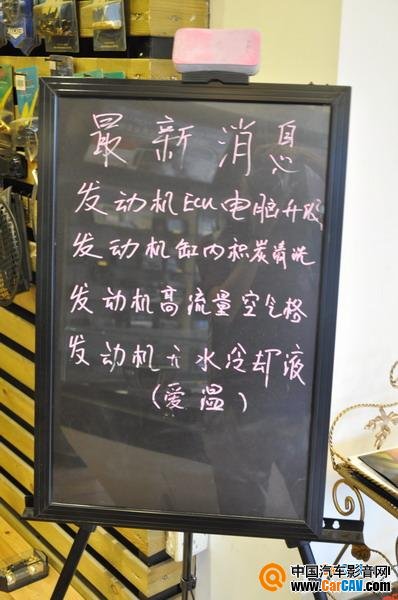 最新消息
发动机ECU电脑升级
发动机缸内积炭清洗
发动机高流量空气格
发动机无水冷却液
(爱温)
中国汽车影音网
www.CarCAV.com